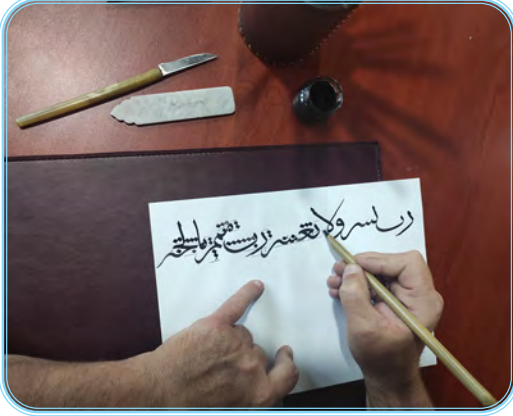 رب يسر ولا تعسر رب تمم بالخير